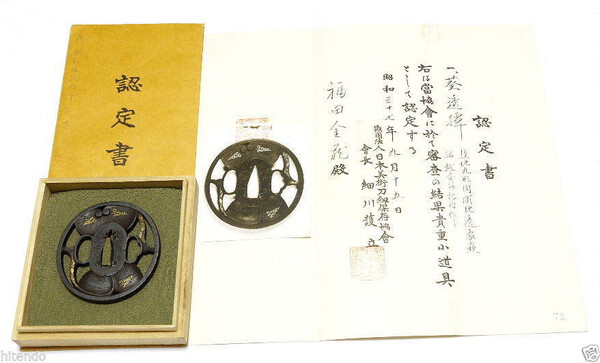 認定書
認定書
一、葵透鐔
右は當協會に於て審査の結果貴重小道具
として認定する
昭和三十七年九月十五日
財団法人日本美術刀剣保存協會
會長 細川護立
福田金蔵殿
72
hitendo